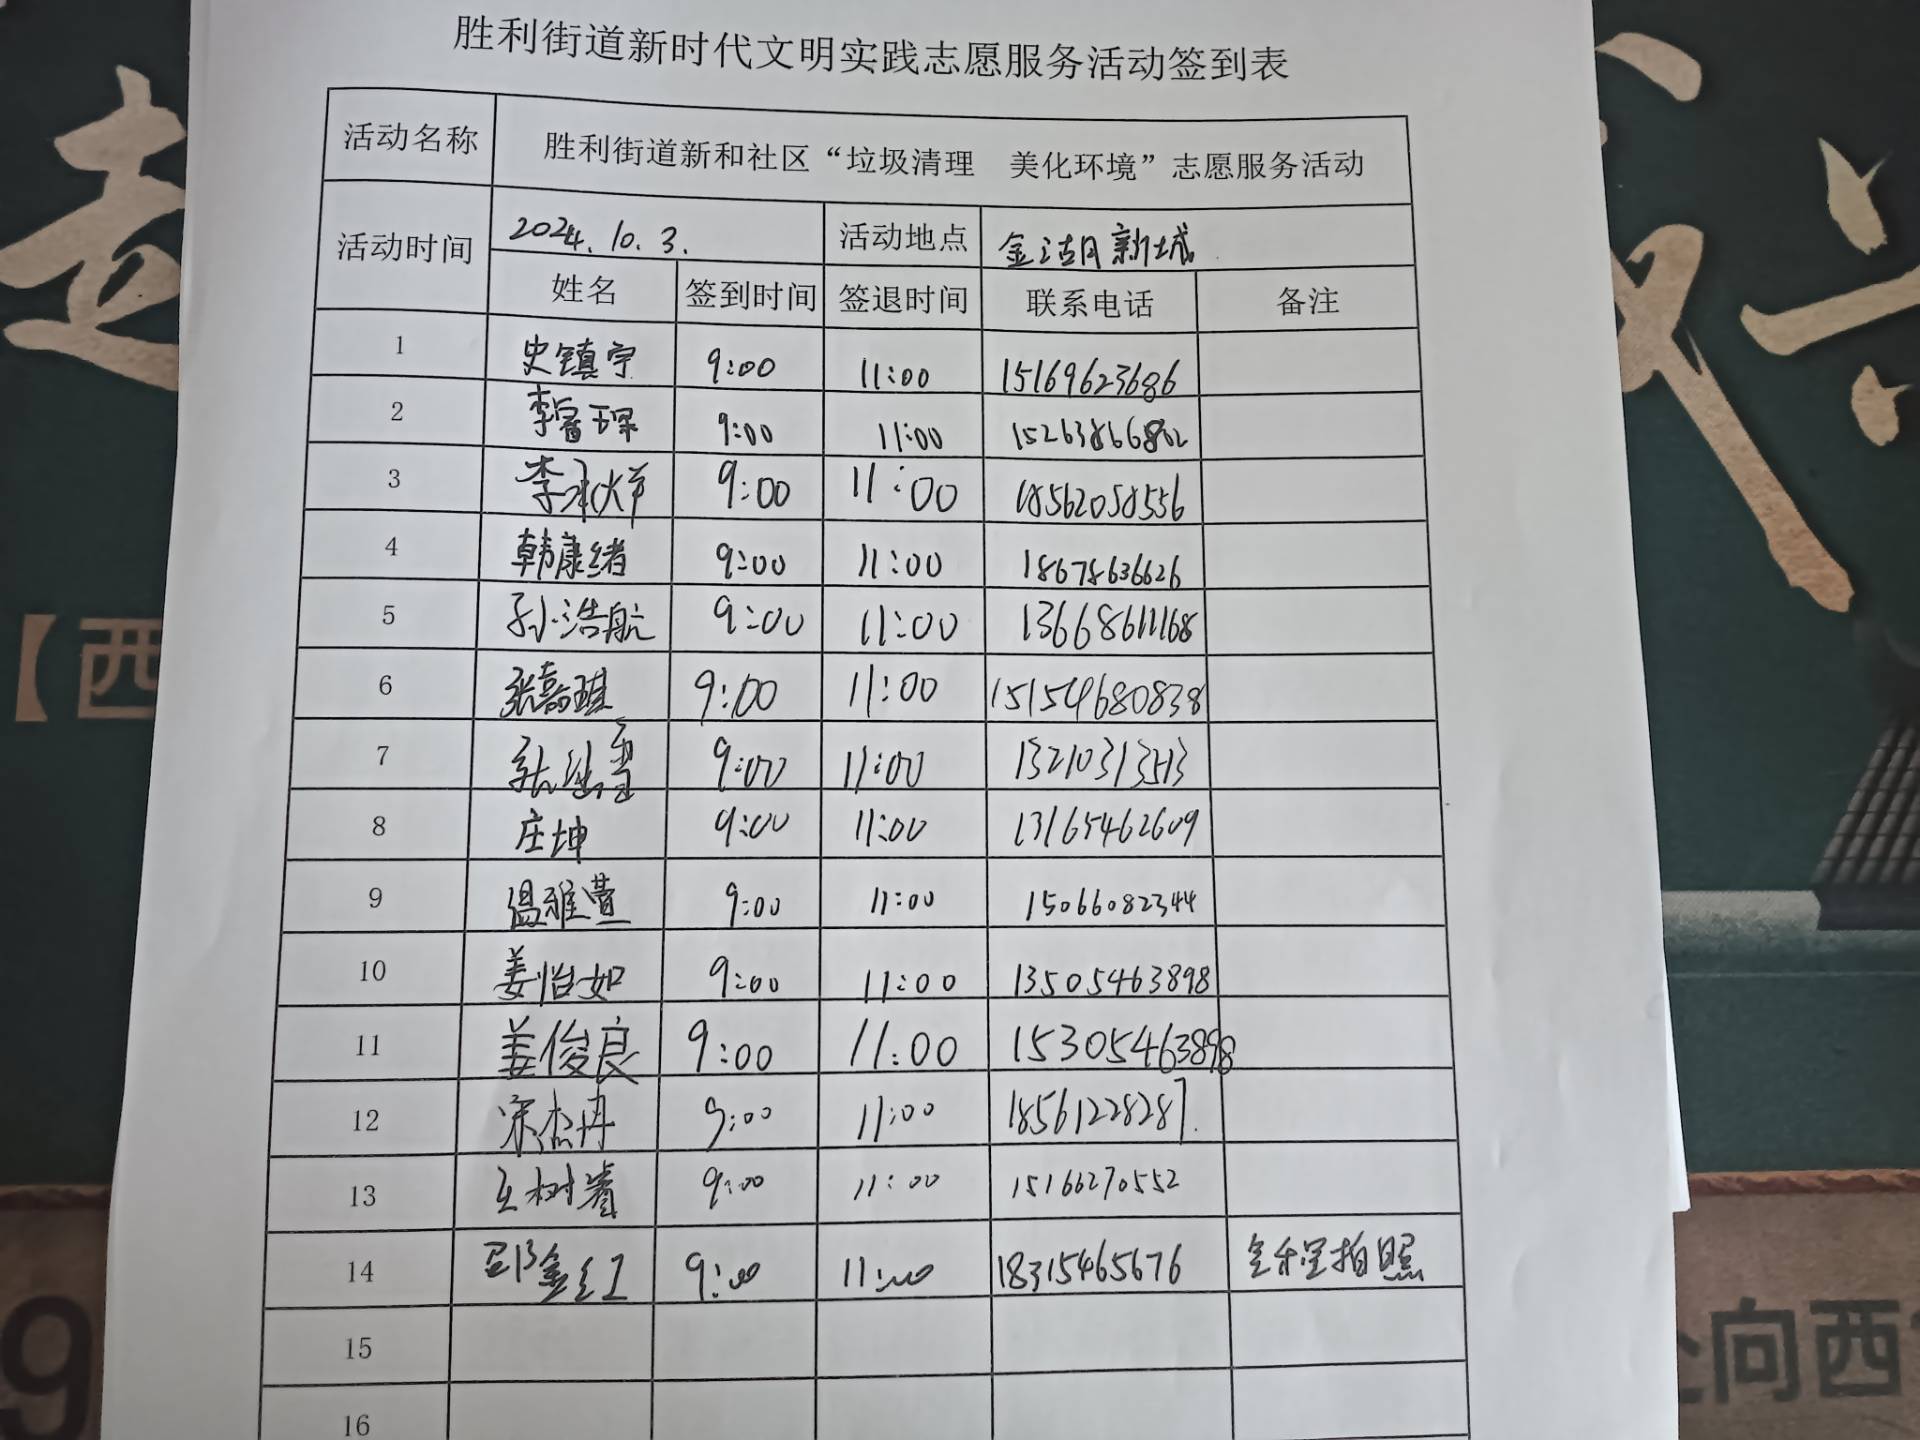 胜利街道新时代文明实践志愿服务活动签到表
活动名称 胜利街道新和社区“垃圾清理 美化环境”志愿服务活动
活动时间 2024.10.3. 活动地点 金湖新城
姓名 签到时间 签退时间 联系电话 备注
1 史镇宇 9:00 11:00 15169623686
2 李睿琛 9:00 11:00 15263866802
3 李承烨 9:00 11:00 18562058556
4 韩康绪 9:00 11:00 18678636626
5 孙浩航 9:00 11:00 13668611168
6 张嘉琪 9:00 11:00 15154680838
7 9:00 11:00 13210313513
8 庄坤 9:00 11:00 13165462609
9 温雅萱 9:00 11:00 15066082344
10 姜怡如 9:00 11:00 13505463898
11 姜俊良 9:00 11:00 15305463898
12 宋杰冉 9:00 11:00 18561228287.
13 王树睿 9:00 11:00 15166270552
14 邵金红 9:00 11:00 18315465676 全程拍照
15
16
【西
9
向西